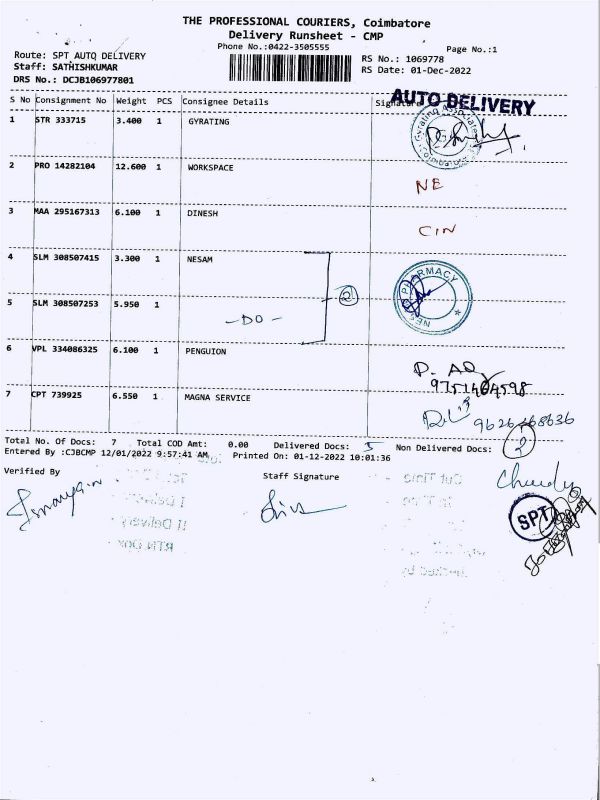 THE PROFESSIONAL COURIERS, Coimbatore
Delivery Runsheet - CMP
Phone No.:0422-3505555
Page No.:1
Route: SPT AUTO DELIVERY
Staff: SATHISHKUMAR
DRS No.: DCJB106977801
RS No.: 1069778
RS Date: 01-Dec-2022
AUTO DELIVERY
S No Consignment No Weight PCS Consignee Details Signature
1 STR 333715 3.400 1 GYRATING
2 PRO 14282104 12.600 1 WORKSPACE NE
3 MAA 295167313 6.100 1 DINESH CIN
4 SLM 308507415 3.300 1 NESAM
PHARMACY
2
5 SLM 308507253 5.950 1 -DO-
6 VPL 334086325 6.100 1 PENGUION
9751464598
7 CPT 739925 6.550 1 MAGNA SERVICE
9626468636
Total No. Of Docs: 7 Total COD Amt: 0.00 Delivered Docs: 5 Non Delivered Docs: 2
Entered By :CJBCMP 12/01/2022 9:57:41 AM Printed On: 01-12-2022 10:01:36
Verified By Staff Signature
SPT